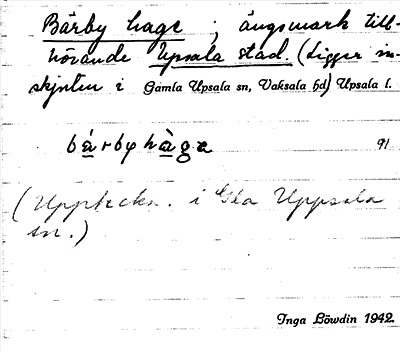 Bärby hage ; ängsmark till-
hörande Upsala stad. (Ligger in-
skjuten i Gamla Upsala sn, Vaksala hd) Upsala l.
bárby hàga 91
(Uppteckn. i Gla Uppsala
sn.)
Inga Löwdin 1942.